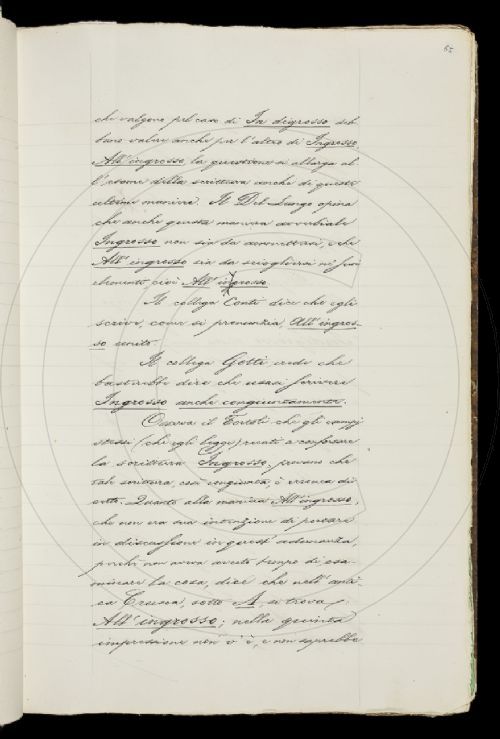 65
che valgono pel caso di In digrosso deb-
bano valere anche per l'altro di Ingrosso
All'ingrosso, la questione si allarga al-
l'esame della scrittura anche di queste
ultime maniere. Il Del Lungo opina
che anche questa maniera avverbiale
Ingrosso non sia da ammettersi, e che
All'ingrosso sia da sciogliersi ne' suoi
elementi, cioè All'in grosso.
Il collega Conti dice che egli
scrive, come si pronunzia, All'ingros-
so unito.
Il collega Gotti crede che
basterebbe dire che usasi scrivere
Ingrosso anche congiuntamente.
Osserva il Tortoli che gli esempj
stessi (che egli legge) recati a confortare
la scrittura Ingrosso, provano che
tale scrittura, così congiunta, è erronea di-
zione. Quanto alla maniera All'ingrosso,
che non era sua intenzione di portare
in discussione in quest'adunanza,
perchè non aveva avuto tempo di esa-
minare la cosa, dice che nell'anti-
ca Crusca, sotto A, si trova
All'ingrosso; nella quinta
impressione non v'è, e non saprebbe